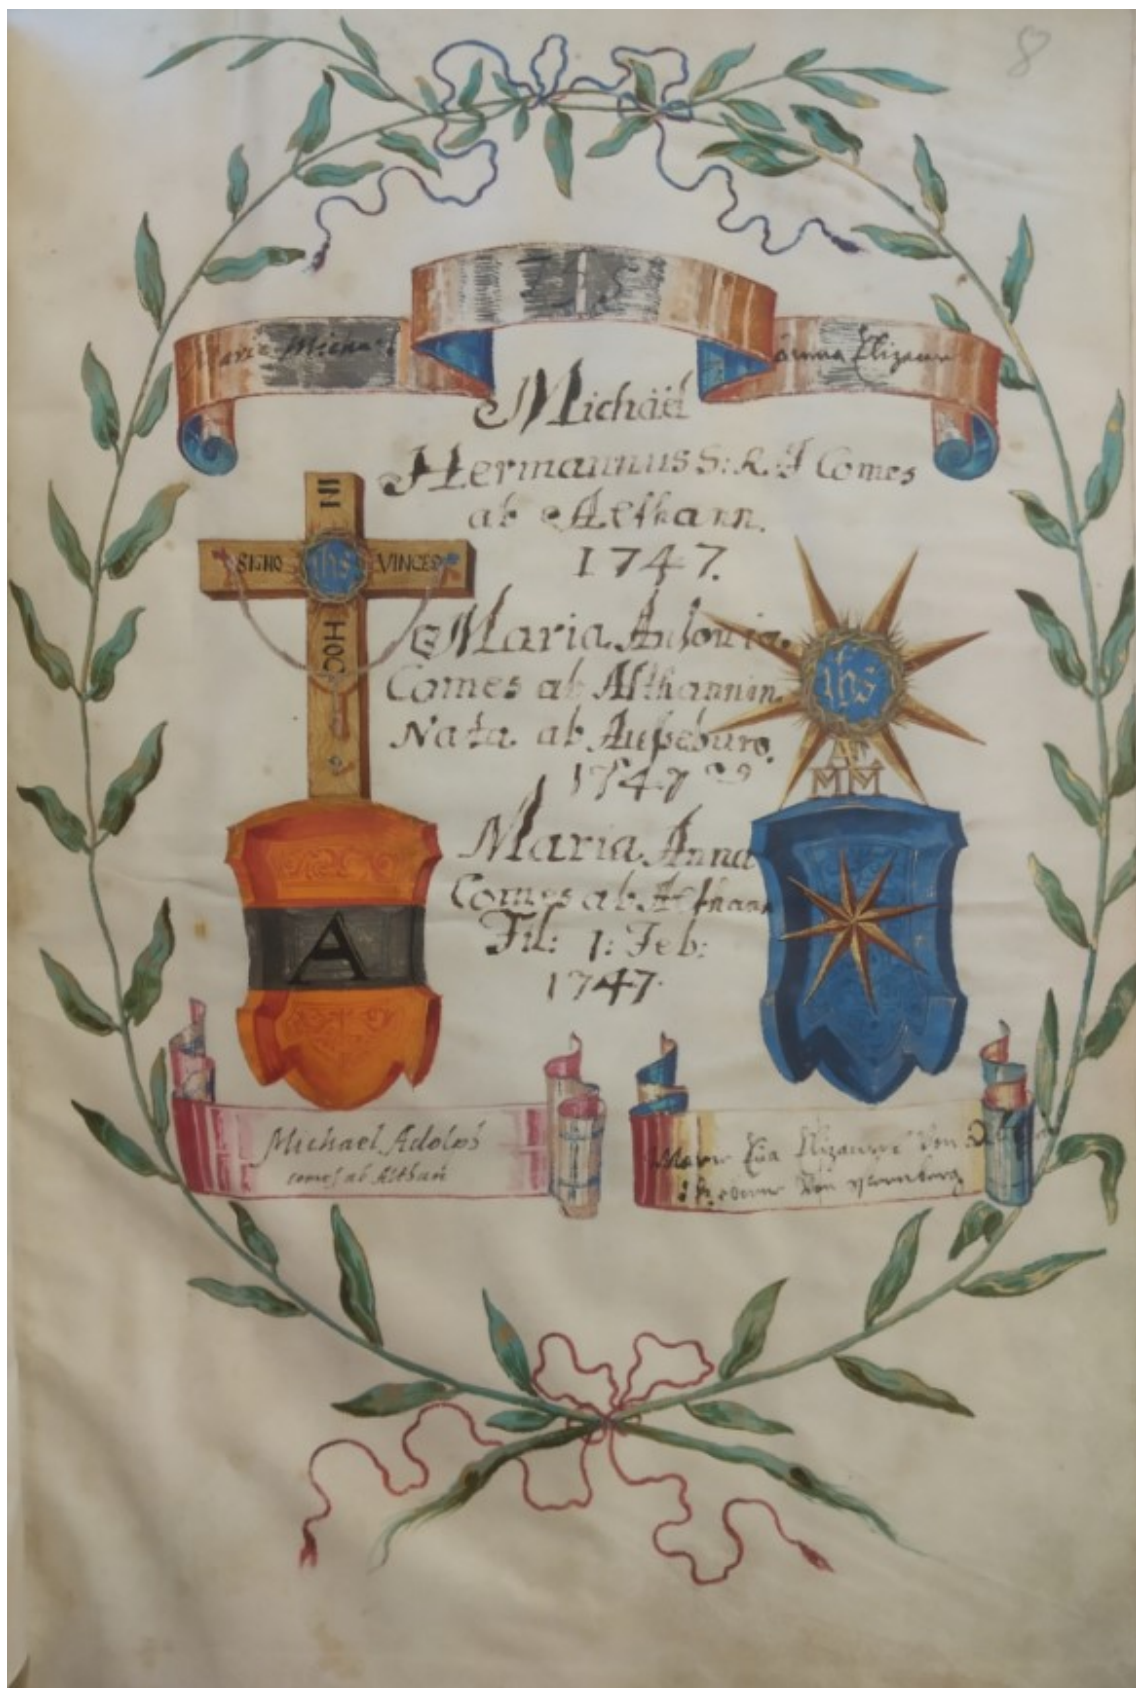 8
Maria Michael
Anna Elizaw
Michäel
Hermannus S: R. I Comes
ab Aelhann.
1747.
IN
SIGNO ihs VINCES
HOC
Maria Antonia.
Comes ab Althannin.
Nata ab
1747
ihs
MM
Maria Anna
Comes ab Aelhann
Fil: 1: Feb:
1747.
A
Michael Adolph
comes ab Althan
Maria Eva Elizaweht Von
Von Sternberg